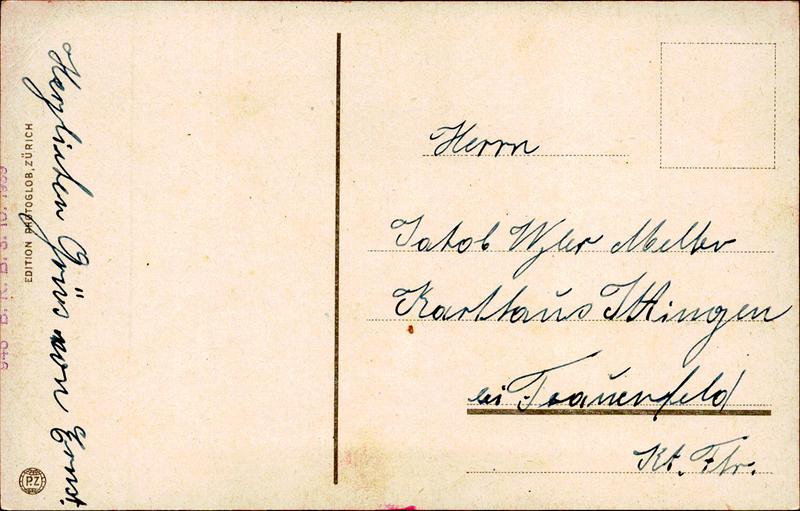 Herzlichen Grüs von Ernst.
EDITION PHOTOGLOB, ZÜRICH
P.Z
Herrn
Jakob Wyler Melker
Karthaus Ittingen
bei Frauenfeld
Kt. Thr.